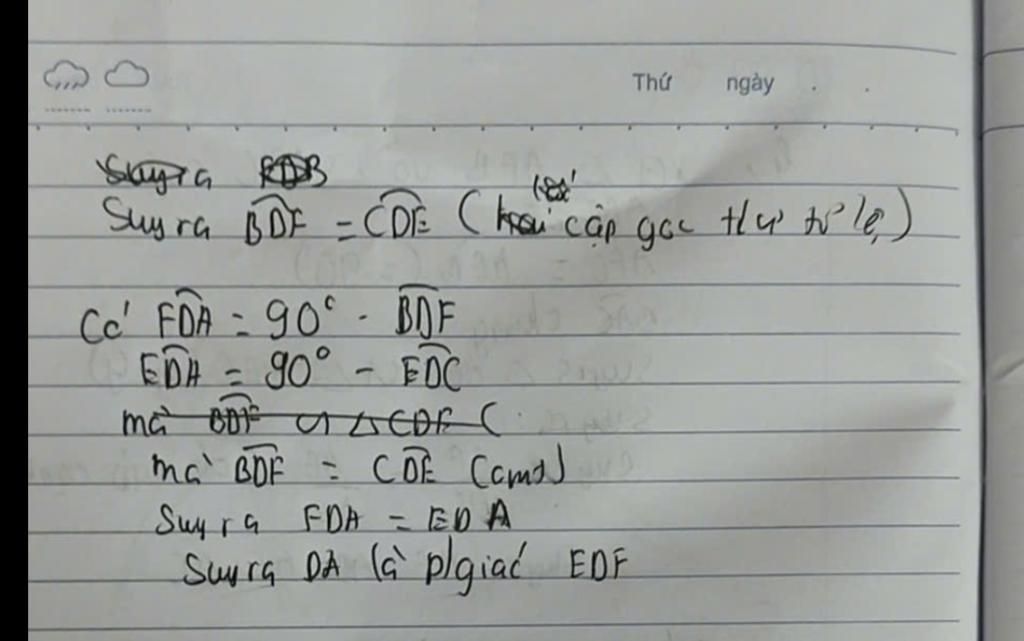 Thứ ngày . .
Suy ra EDB
Suy ra BDF = CDE ( cặp goc tư tỉ lệ )
Có FDA = 90° - BDF
EDA = 90° - EDC
mà BDF ᔕ △CDE (
mà BDF = CDE (cmt)
Suy ra FDA = EDA
Suy ra DA là p/giác EDF